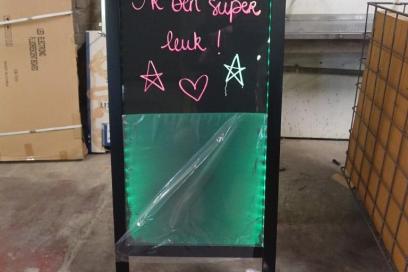 Ik ben super
leuk !